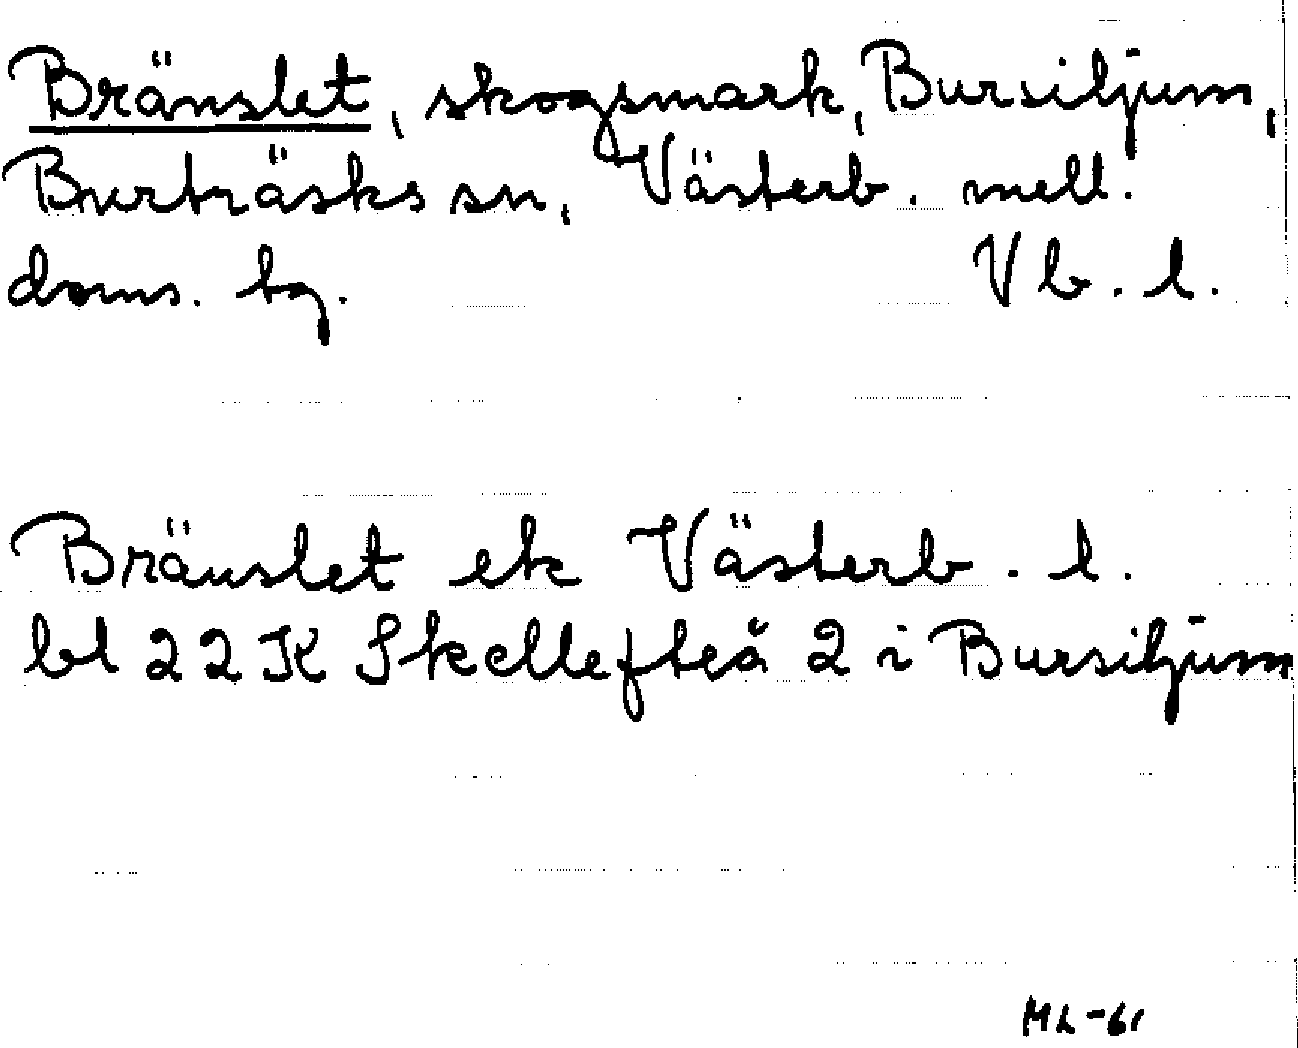 Bränslet, skogsmark, Bursiljum,
Burträsks sn, Västerb. mell.
doms. tg. Vb. l.
Bränslet ek Västerb. l.
bl 22K Skellefteå 2 i Bursiljum
ML-61